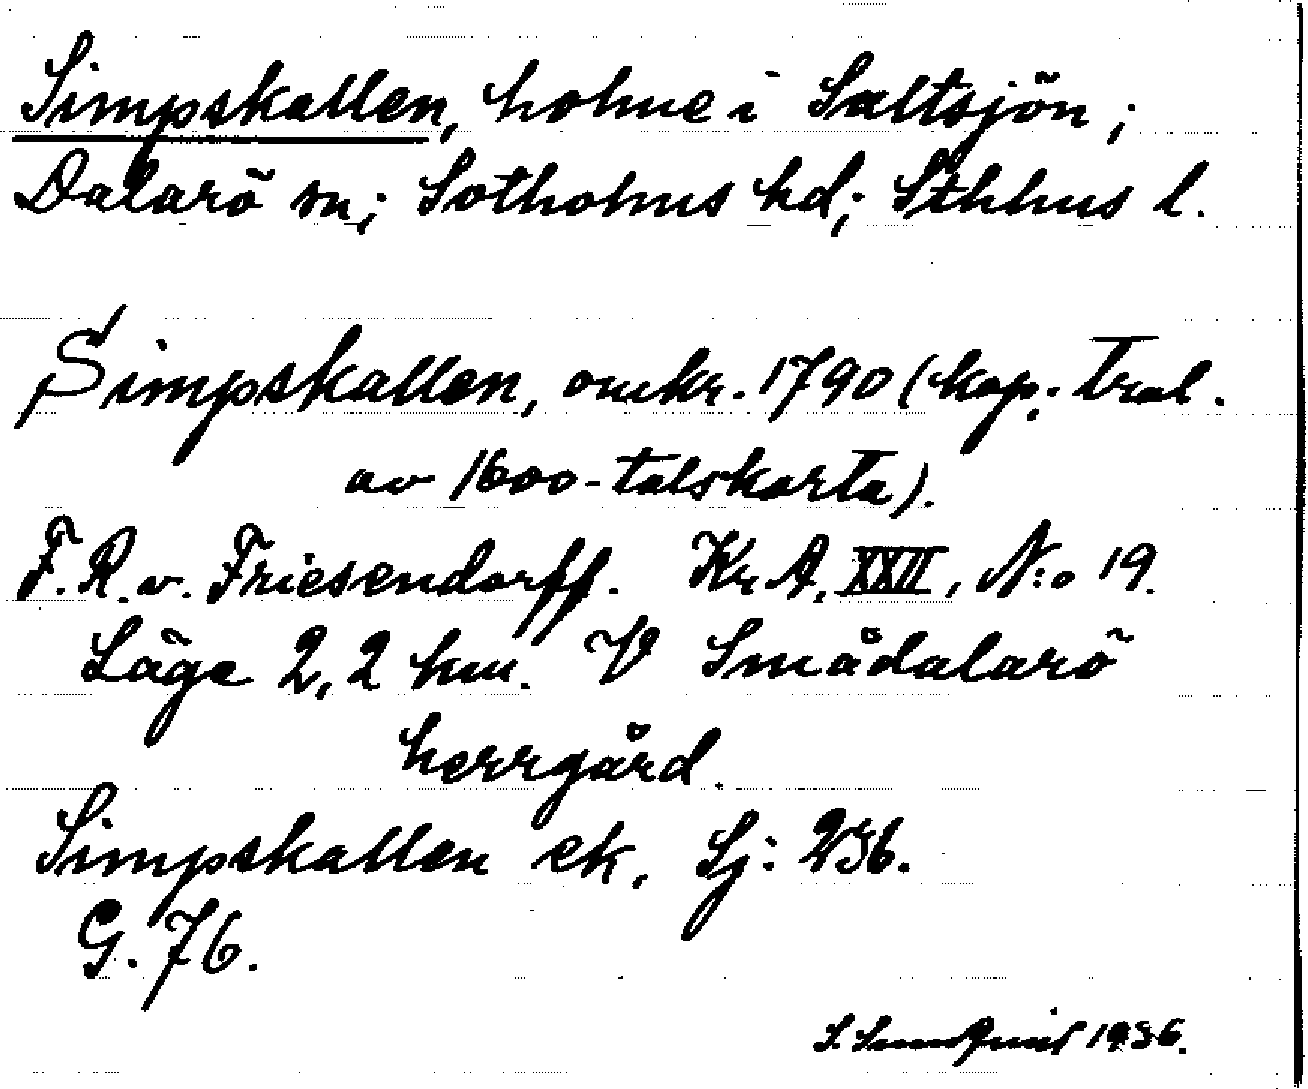 Simpskallen, holme i Saltsjön;
Dalarö sn; Sotholms hd; Sthlms l.
Simpskallen, omkr. 1790 (kop. Tral.
av 1600-talskarta).
F. R. v. Friesendorff. Kr. A. XXII, N:o 19.
Läge 2,2 km. V Smådalarö
herrgård.
Simpskallen ek. Sj: 236.
G. 76.
1936.